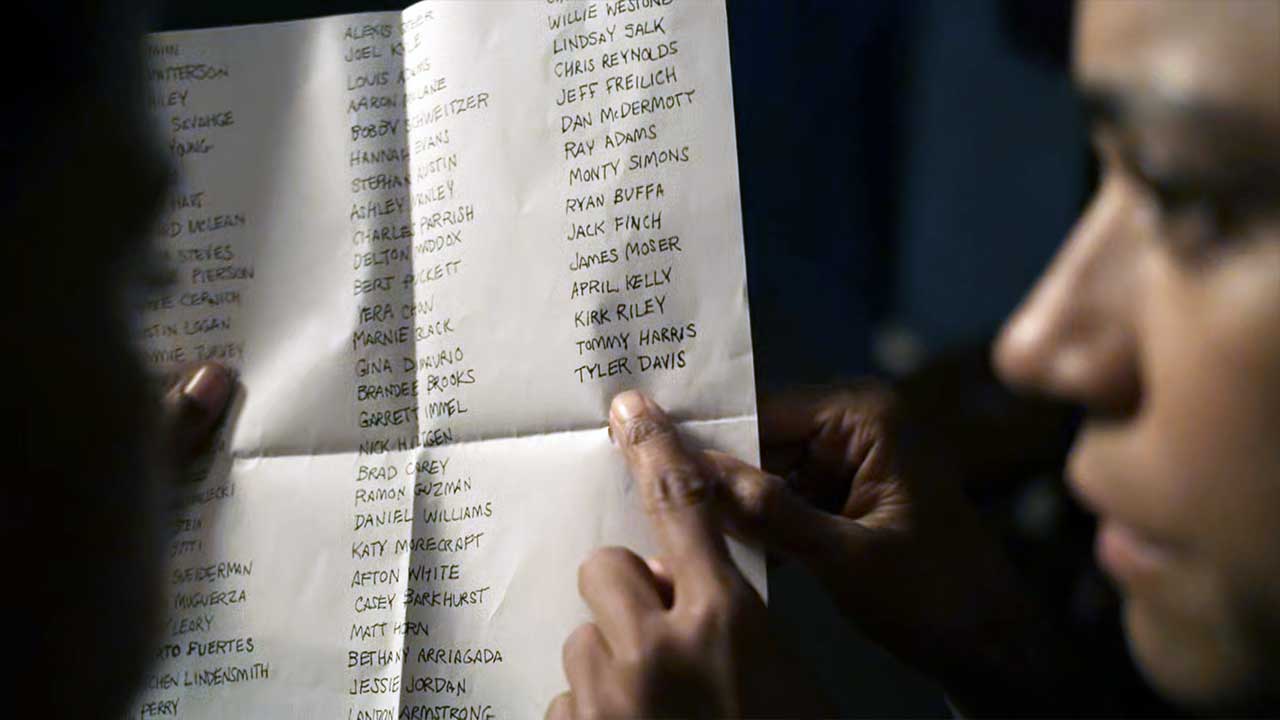 PATTERSON
YOUNG
HART
MCLEAN
STEVES
PIERSON
CERNICH
LOGAN
TURVEY
SNEIDERMAN
MUGUERZA
LEARY
FUERTES
LINDENSMITH
PERRY
ALEXIS
JOEL
LOUIS
AARON
BOBBY SCHWEITZER
HANNAH EVANS
STEPHAN AUSTIN
ASHLEY
CHARLES PARRISH
DELTON MADDOX
BERT PUCKETT
VERA
MARNIE BLACK
GINA DIMAURIO
BRANDEE BROOKS
GARRETT IMMEL
NICK
BRAD CAREY
RAMON GUZMAN
DANIEL WILLIAMS
KATY MORECRAFT
AFTON WHITE
CASEY BARKHURST
MATT HORN
BETHANY ARRIAGADA
JESSIE JORDAN
LANDON ARMSTRONG
WILLIE WESTONE
LINDSAY SALK
CHRIS REYNOLDS
JEFF FREILICH
DAN McDERMOTT
RAY ADAMS
MONTY SIMONS
RYAN BUFFA
JACK FINCH
JAMES MOSER
APRIL KELLY
KIRK RILEY
TOMMY HARRIS
TYLER DAVIS